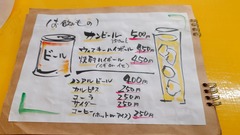 (お飲みもの)
カンビール 500円
ビール
ウイスキーハイボール 450円
焼酎ハイボール 450円
ノンアルビール 400円
カルピス 250円
コーラ 250円
サイダー 250円
コーヒー(ホットorアイス) 350円